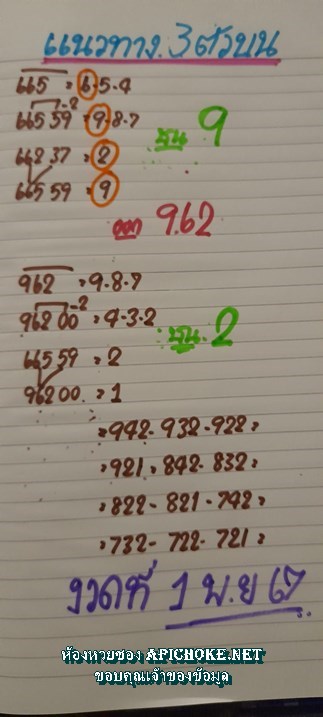 แนวทาง 3 ตัวบน
665 = 6.5.4
66559 -2 = 9.8.7
บน 9
66237 = 2
66559 = 9
ออก 962
962 = 9.8.7
96200 -2 = 4.3.2
บน 2
66559 = 2
96200 = 1
= 942- 932- 922 =
= 921 = 842- 832 =
= 822- 821- 742 =
= 732- 722- 721 =
งวดที่ 1 พ.ย 67
ห้องหวยซอง APICHOKE.NET
ขอบคุณเจ้าของข้อมูล